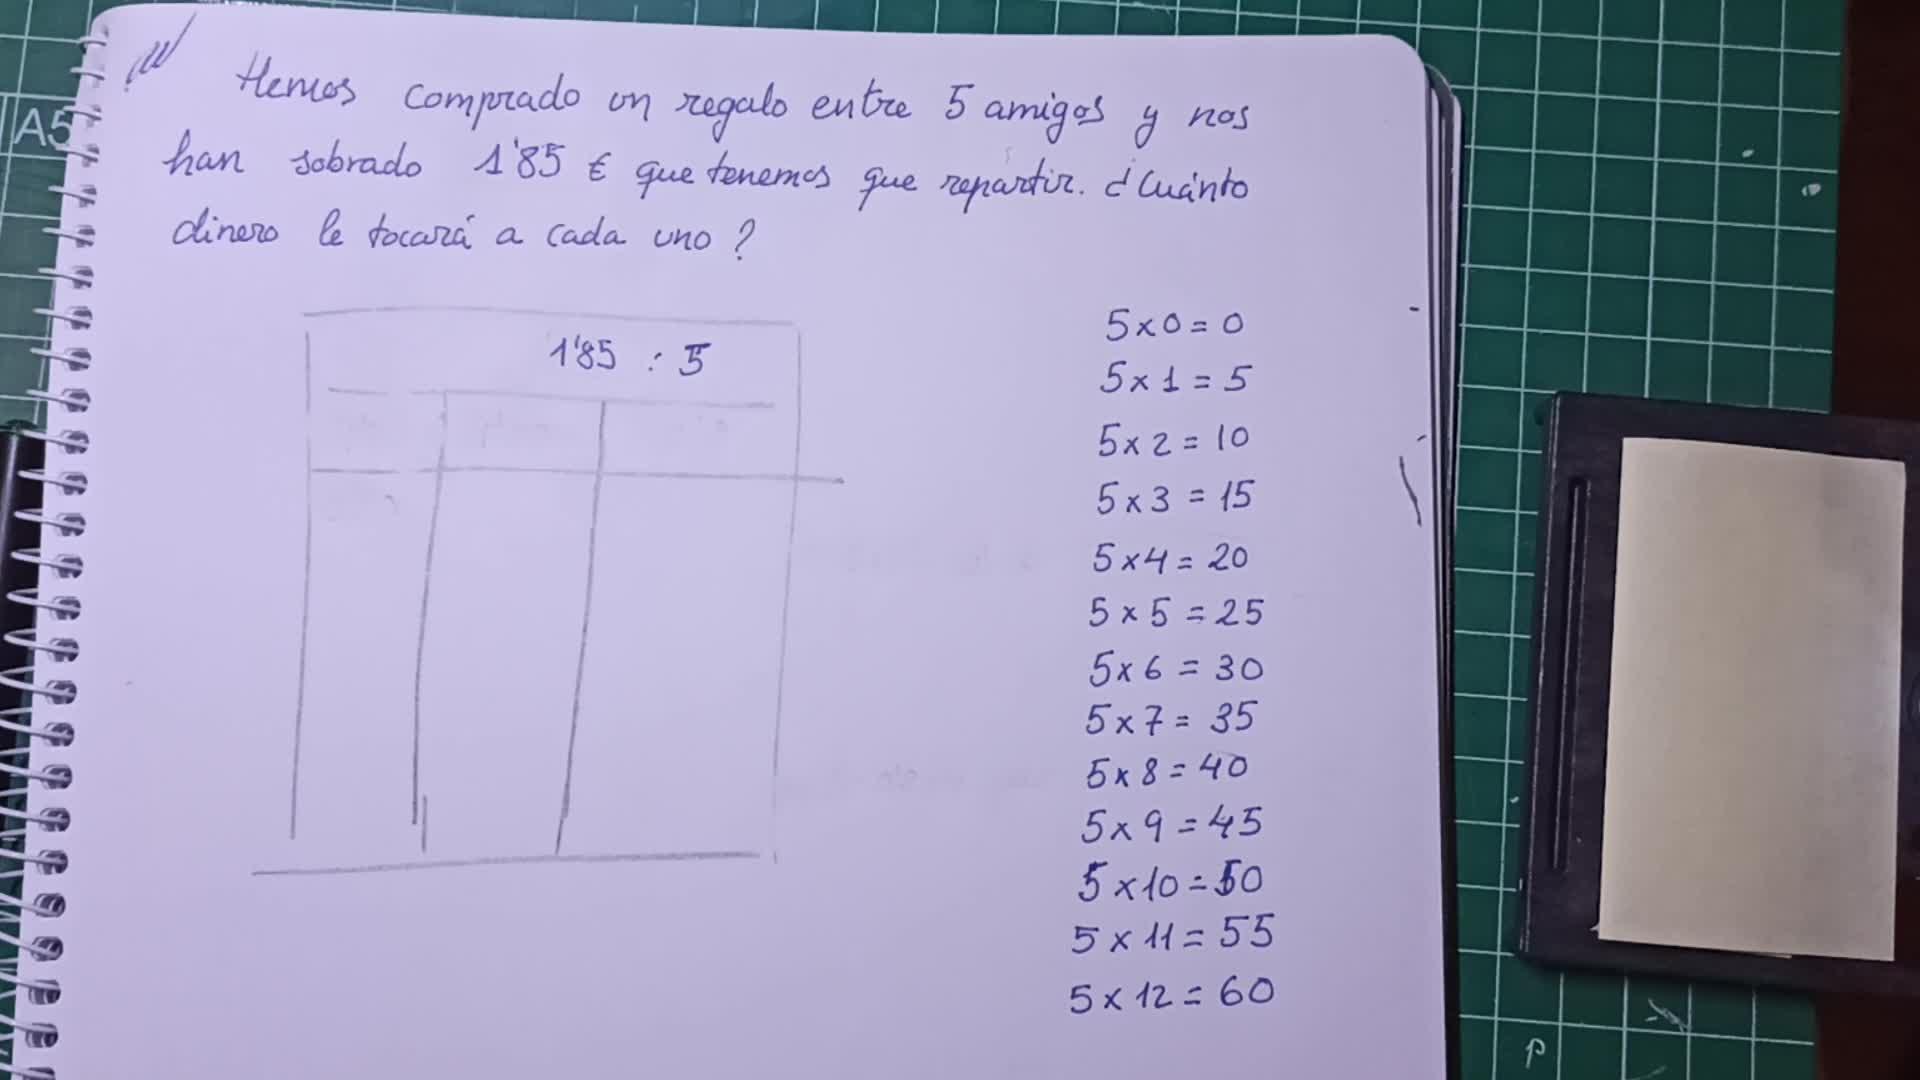 Hemos comprado un regalo entre 5 amigos y nos
han sobrado 1'85 € que tenemos que repartir. ¿Cuánto
dinero le tocará a cada uno?
1'85 : 5
5 x 0 = 0
5 x 1 = 5
5 x 2 = 10
5 x 3 = 15
5 x 4 = 20
5 x 5 = 25
5 x 6 = 30
5 x 7 = 35
5 x 8 = 40
5 x 9 = 45
5 x 10 = 50
5 x 11 = 55
5 x 12 = 60
A5